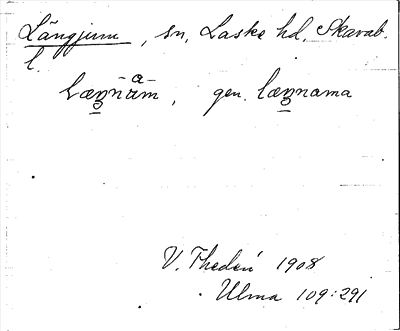 Långjum, sn, Laske hd, Skarab.
l.
læŋnam, gen. læŋnama
V. Thedén 1908
Ulma 109:291